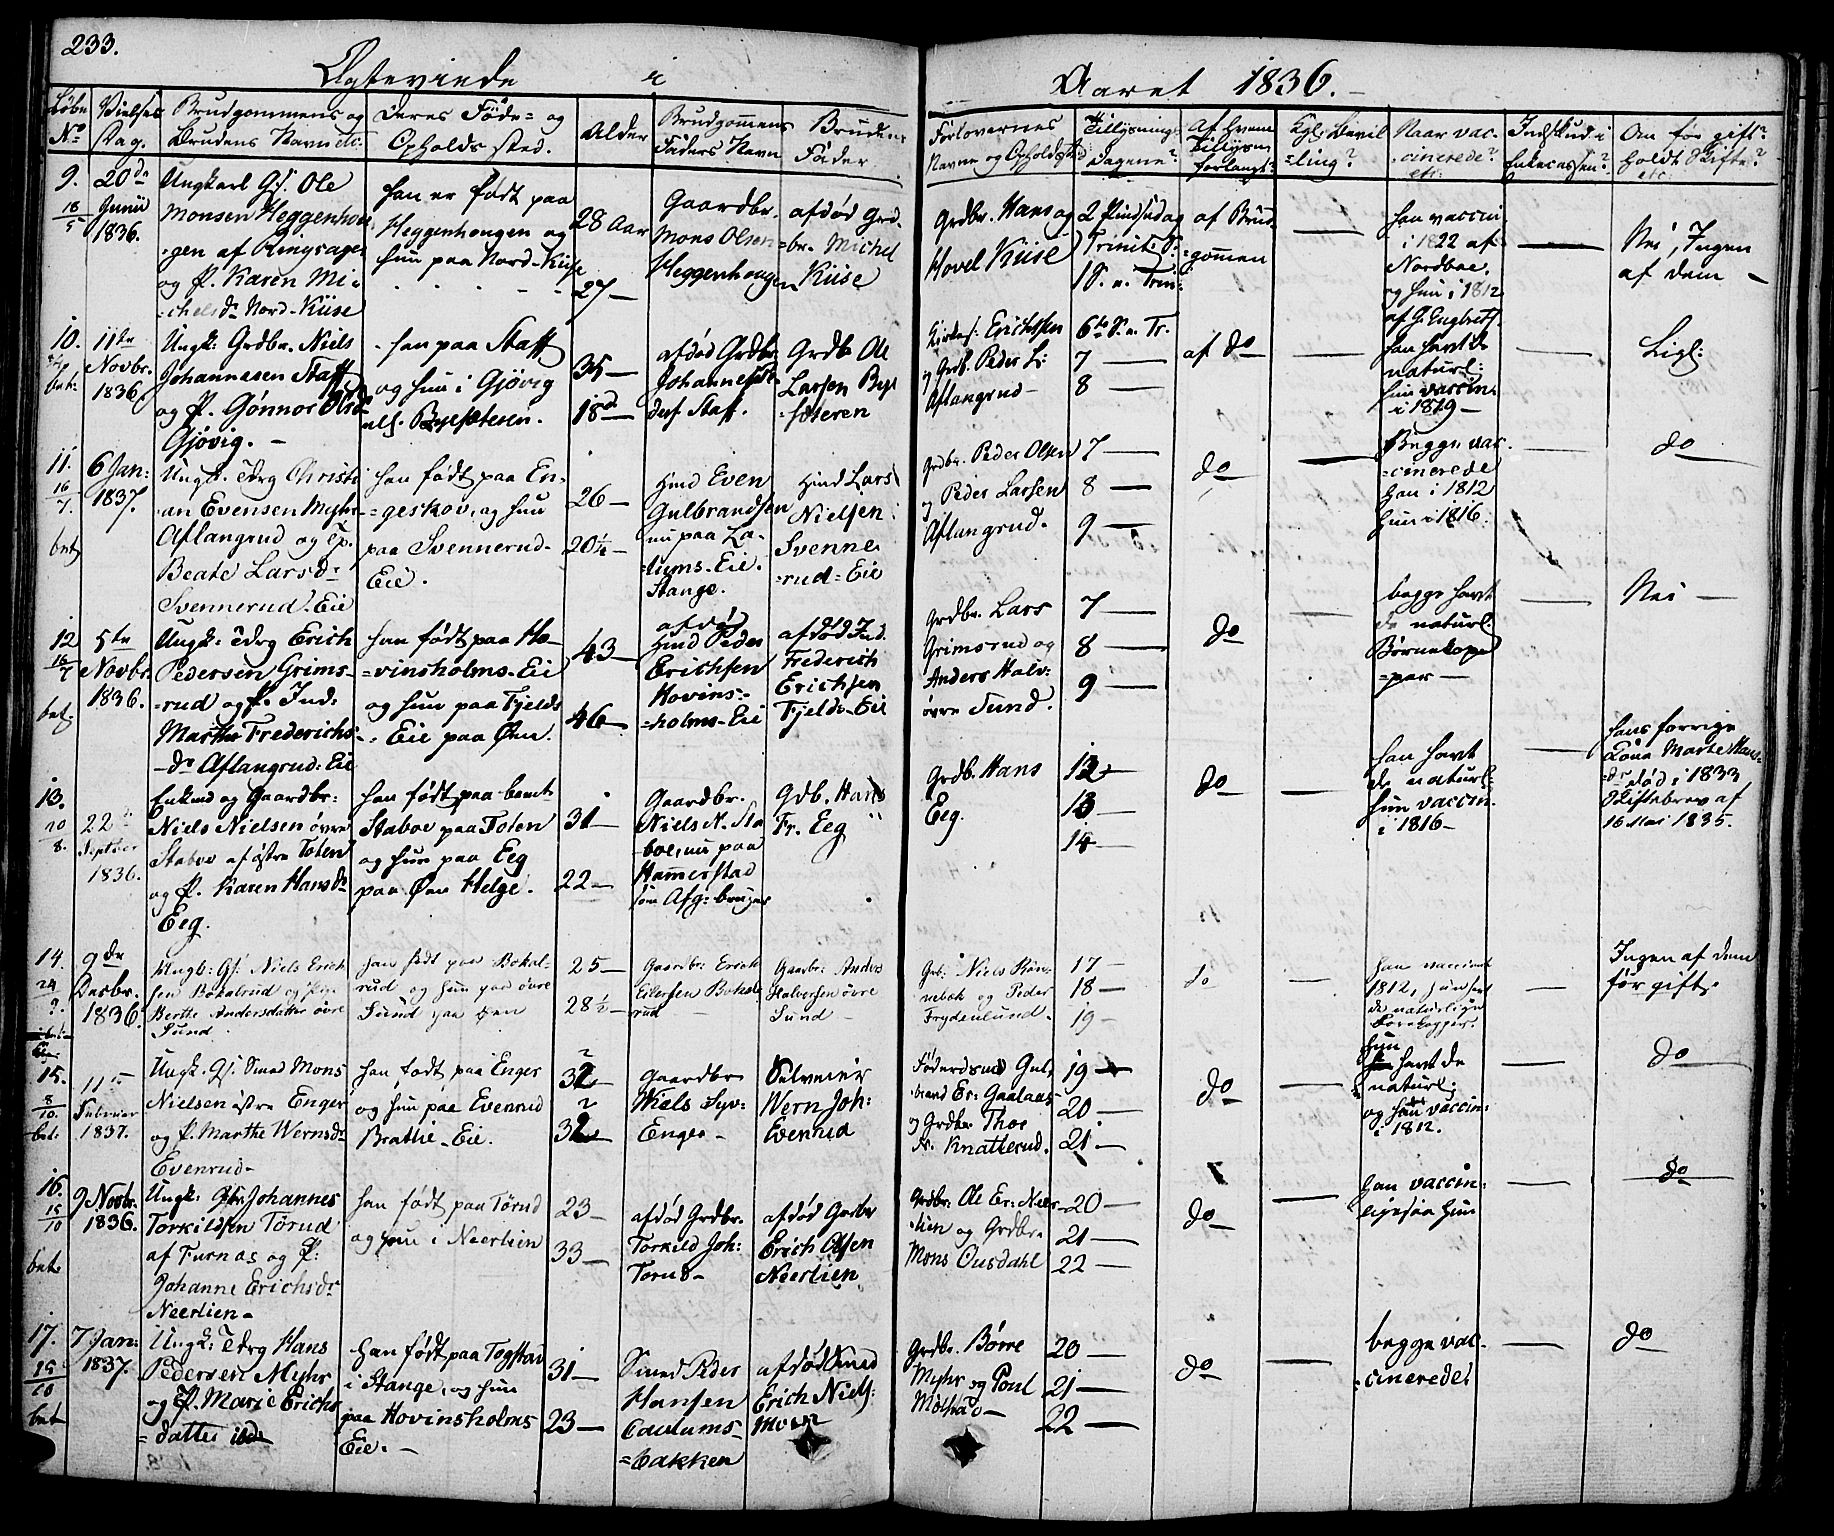 233.
Ægteviede i Aaret 1836.
Løbe No
Vielses Dag.
Brudgommens og Brudens Navn etc.
Deres Føde- og Opholds sted.
Alder
Brudgommens Faders Navn
Brudens Fader.
Forlovernes Navne og Opholdsted
Tillysnings Dagene?
Af hvem Tillysn. forlangt?
Kgl. Bevilling?
Naar vaccinerede? etc.
Indskud i Enkecassen?
Om før gift? holdt Skifte? etc.
9.
18/5
20de Junii 1836.
Ungkarl Gf. Ole
Monsen Heggenhou
gen af Ringsager
og P. Karen Mi
chelsdr Nord-Kiise
han er født paa
Heggenhougen og
hun paa Nord-Kiise
28 Aar
27 —
Gaardbr.
Mons Olsen
Heggenhougen
afdød Grd.
br. Michel
Kiise
Grdbr. Hans og
Hovel Kiise
2 Pindsedag
Trinit. S.
1 S. e. Trin:
af Brud
gommen
han vaccin.
i 1822 af
Nordboe,
og hun i 1812
af G. Engbrets.
Nei, Ingen
af dem —
10.
bet:
11te
Novbr.
1836.
Ungk: Grdbr. Niels
Johannesen Staff
og P. Gønnor Olsdr
Gjøvig. —
han paa Staff
og hun i Gjøvig
35 —
18 —
afdød Grdbr.
Johannes
Staff.
Grdbr Ole
Larsen Bye
sæteren
Kirkes: Erichsen
og Grdb. Peder L:
Aflangrud —
6te S. e. Tr.
7 —
8 —
af do —
han havt de
naturl:
hun vaccin.
i 1819 —
Ligl:
11.
16/7.
bet
6 Jan:
1837.
Ungk. Tdrg Christi
an Evensen Myhr
Aflangrud og Tp.
Beate Larsdr
Svennerud-Eie
han født paa En-
geskov, og hun
paa Svennerud-
Eie.
26 —
20½ —
Hmd Even
Gulbrandsen
nu paa La-
lums-Eie.
Stange.
Hmd Lars
Nielsen
Svenne-
rud-Eie
Grdbr. Peder Olsen
og Peder Larsen
Aflangrud.
7 —
8 —
9 —
do
Begge vac-
cinerede
han i 1812
hun i 1816.
do
12
16/7
bet.
5te
Novbr.
1836.
Ungk: Tdrg Erich
Pedersen Grims-
rud og P. Ind:
Marthe Frederichs-
dr Aflangrud: Eie
han født paa Ho-
vinsholms-Eie
og hun paa Fjelds
Eie paa Øen.
43 —
46 —
afdød
Hmd Peder
Erichsen
Hovins-
holms-Eie
afdød Ind.
Frederich
Erichsen
Fjelds-Eie
Grdbr. Lars
Grimsrud og
Anders Halv:
øvre Sund.
7 —
8 —
9 —
do
begge havt
de naturl.
Børnekop-
per —
Nei —
13.
20/8.
22
Septber
1836.
Enkmd og Gaardbr:
Niels Nielsen øvre
Staboe af østre Toten
og P. Karen Hansdr
Eeg.
han født paa bemt
Staboe paa Toten
og hun paa Eeg
paa Øen Helge.
31 —
22 —
Gaardbr.
Niels N. Sta
boe, nu paa
Hammerstad
som Afg: bruger
Gdb. Hans
Fr. Eeg
Grdb. Hans
Eeg.
12 —
13 —
14 —
do
han havt
de naturl.
hun vaccin.
i 1816 —
hans forrige
Kone Marte Hans-
dr død i 1833
Skiftebrev af
16 Mai 1835.
14.
24/9
9de
Decbr.
1836.
Ungk: Gf: Niels Erich
sen Bokalrud og Pige
Berthe Andersdatter øvre
Sund
han født paa Bokal-
rud og hun paa øvre
Sund paa Øen
25 —
28½ —
Gaardbr: Erich
Eilersen Bokal-
rud —
Gaardbr: Anders
Halversen øvre
Sund —
Grb: Niels Røn-
nebek og Peder
Frydenlund.
17 —
18 —
19 —
do
han vaccineret
1812, hun havt
de naturlige
Børnekopper.
Ingen af dem
før gift.
15.
8/10.
bet:
11te
Februar
1837.
Ungk. Gf. Smed Mons
Nielsen østre Enger
og P. Marthe Wernsdr
Evenrud —
han født paa Enger
og hun paa Evenrud
Brattlie-Eie.
32 —
32 —
Gaardbr
Niels Syv:
Enger —
Selveier
Wern Joh:
Evenrud
Føderdsmd Gul-
brand Er: Gaalaas
og Grdbr. Thor
Fr. Knatterud.
19 —
20 —
21 —
do
hun havt de
naturl:
og han vaccin:
i 1812.
do
16.
15/10
bet.
9 Novbr.
1836.
Ungk: Gbr. Johannes
Torkildsen Tørud
af Furnæs og P:
Johanne Erichsdr
Neerlien —
han født paa Tørud
og hun i Neerlien
23 —
33 —
afdød Grdbr.
Torkild Joh:
Torud —
afdød Grdbr
Erich Olsen
Neerlien
Grdbr. Ole Er: Neer-
lien og Grdbr.
Mons Ousdahl
20 —
21 —
22 —
do
han vaccin-
ligesaa hun
do
17.
15/10
bet
7 Jan:
1837.
Ungk: Tdrg Hans
Pedersen Myhr
og P. Marie Erichs
datter ibdm
han født paa Togstad
i Stange, og hun
paa Hovinsholms
Eie. —
31 —
23 —
Smed Peder
Hansen
Caulums-
bakken
afdød Smed
Erich Niels:
Moen
Grdbr. Børre
Myhr og Poul
Molstad —
20 —
21 —
22 —
do
begge vac-
cineredet
do